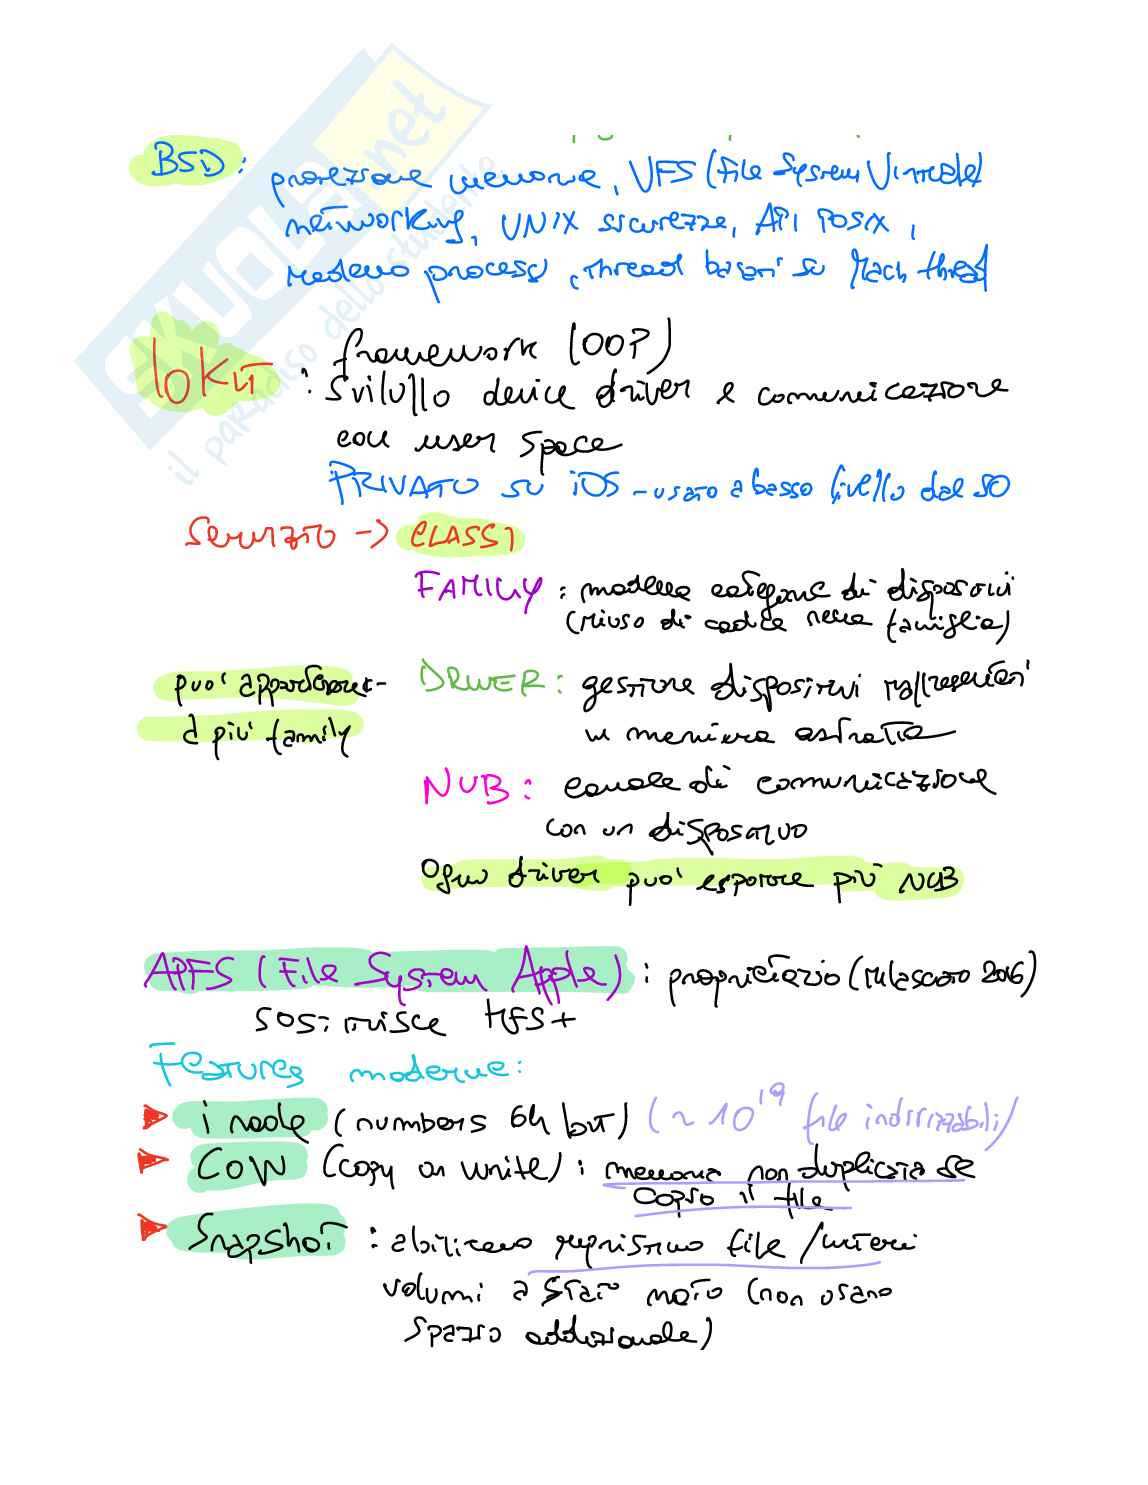 SKUOLA.net
il paradiso dello studente
BSD : protezione memoria, VFS (File System Virtuale)
networking, UNIX sicurezza, API POSIX,
modello processi, thread basati su Mach thread
IOKit : framework (OOP)
sviluppo device driver e comunicazione
con user space
PRIVATO su iOS - usato a basso livello dal SO
Servizio -> CLASSI
FAMILY : modella categorie di dispositivi
(riuso di codice nella famiglia)
può appartenere - DRIVER : gestione dispositivi rappresentati
a più family in maniera astratta
NUB : canale di comunicazione
con un dispositivo
Ogni driver può esporre più NUB
APFS (File System Apple) : proprietario (rilasciato 2016)
sostituisce HFS+
Features moderne :
inode (numbers 64 bit) (~ 10^19 file indirizzabili)
COW (copy on write) : memoria non duplicata se
copio il file
Snapshot : abilitano ripristino file / interi
volumi a stato noto (non usano
spazio addizionale)